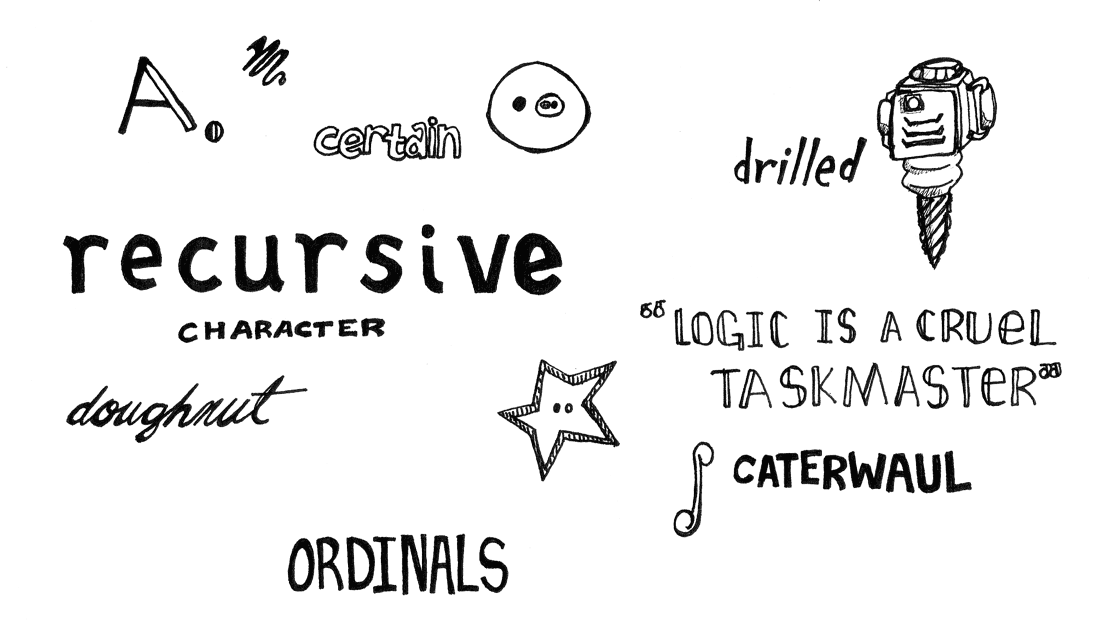 A.
certain
drilled
recursive
CHARACTER
"LOGIC IS A CRUEL
TASKMASTER"
doughnut
CATERWAUL
ORDINALS